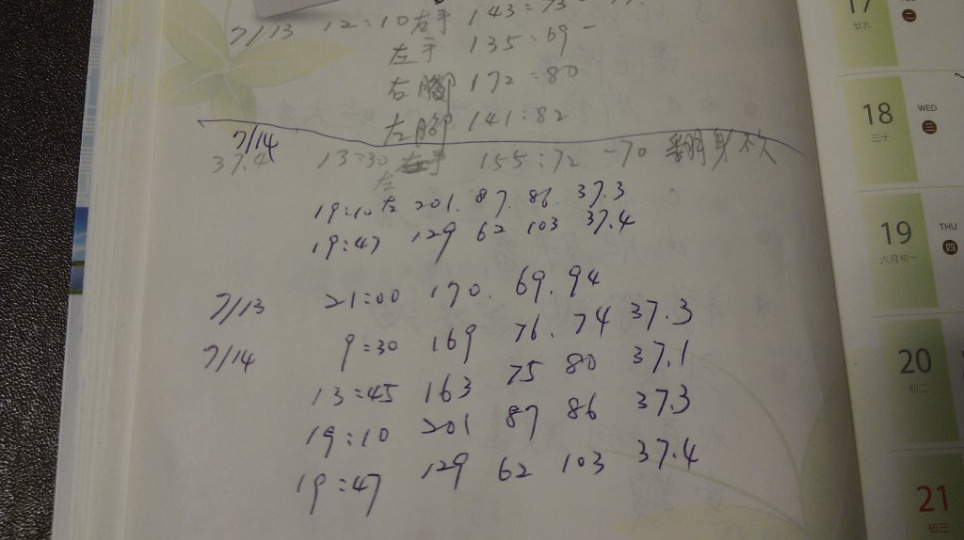 7/13 12:10 左手 143:73
左手 135:69-
右腳 172:80
左腳 141:82
7/14
37.4 13:30 左手 155:72 -70 翻身
左
19:10 左 201. 87. 86. 37.3
19:47 129 62 103 37.4
7/13 21:00 170. 69. 94
7/14 9:30 169 76. 74 37.3
13:45 163 75 80 37.1
19:10 201 87 86 37.3
19:47 129 62 103 37.4
17
廿九
二
18 WED
三十 三
19 THU
六月初一 四
20
初二
21
初三